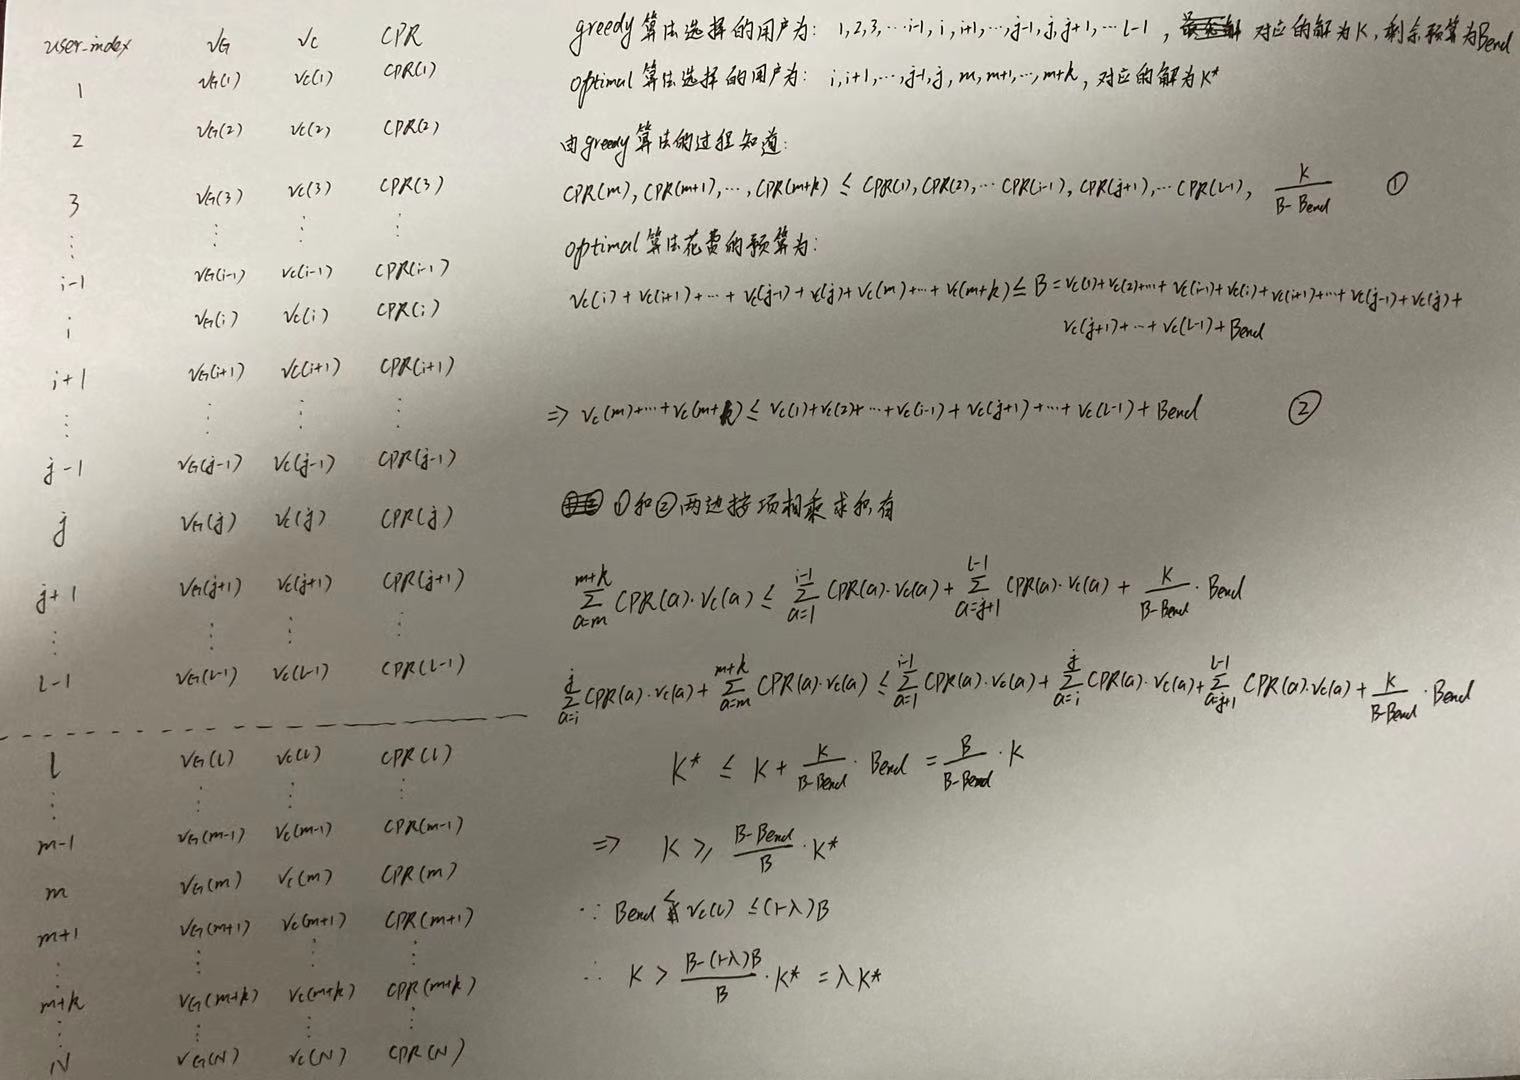 user-index VG VC CPR
1 VG(1) VC(1) CPR(1)
2 VG(2) VC(2) CPR(2)
3 VG(3) VC(3) CPR(3)
⋮ ⋮ ⋮ ⋮
i-1 VG(i-1) VC(i-1) CPR(i-1)
i VG(i) VC(i) CPR(i)
i+1 VG(i+1) VC(i+1) CPR(i+1)
⋮ ⋮ ⋮ ⋮
j-1 VG(j-1) VC(j-1) CPR(j-1)
j VG(j) VC(j) CPR(j)
j+1 VG(j+1) VC(j+1) CPR(j+1)
⋮ ⋮ ⋮ ⋮
L-1 VG(L-1) VC(L-1) CPR(L-1)
L VG(L) VC(L) CPR(L)
⋮ ⋮ ⋮ ⋮
m-1 VG(m-1) VC(m-1) CPR(m-1)
m VG(m) VC(m) CPR(m)
m+1 VG(m+1) VC(m+1) CPR(m+1)
⋮ ⋮ ⋮ ⋮
m+k VG(m+k) VC(m+k) CPR(m+k)
⋮ ⋮ ⋮ ⋮
N VG(N) VC(N) CPR(N)
greedy算法选择的用户为: 1,2,3,…i-1, i, i+1,…,j-1, j, j+1,…L-1, 对应的解为K, 剩余预算为Bend
optimal算法选择的用户为: i, i+1,…, j-1, j, m, m+1,…, m+k, 对应的解为K*
由greedy算法的过程知道:
CPR(m), CPR(m+1),…, CPR(m+k) ≤ CPR(1), CPR(2),… CPR(i-1), CPR(j+1),… CPR(L-1), K/(B-Bend) ①
optimal算法花费的预算为:
VC(i)+VC(i+1)+…+VC(j-1)+VC(j)+VC(m)+…+VC(m+k) ≤ B = VC(1)+VC(2)+…+VC(i-1)+VC(i)+VC(i+1)+…+VC(j-1)+VC(j)+
VC(j+1)+…+VC(L-1)+Bend
⇒ VC(m)+…+VC(m+k) ≤ VC(1)+VC(2)+…+VC(i-1)+VC(j+1)+…+VC(L-1)+Bend ②
①和②两边按项相乘求和,有
∑_{a=m}^{m+k} CPR(a)·VC(a) ≤ ∑_{a=1}^{i-1} CPR(a)·VC(a) + ∑_{a=j+1}^{L-1} CPR(a)·VC(a) + K/(B-Bend) · Bend
∑_{a=i}^{j} CPR(a)·VC(a) + ∑_{a=m}^{m+k} CPR(a)·VC(a) ≤ ∑_{a=1}^{i-1} CPR(a)·VC(a) + ∑_{a=i}^{j} CPR(a)·VC(a) + ∑_{a=j+1}^{L-1} CPR(a)·VC(a) + K/(B-Bend) · Bend
K* ≤ K + K/(B-Bend) · Bend = B/(B-Bend) · K
⇒ K ≥ (B-Bend)/B · K*
∵ Bend ≤ VC(L) ≤ (1-λ)B
∴ K > (B-(1-λ)B)/B · K* = λK*